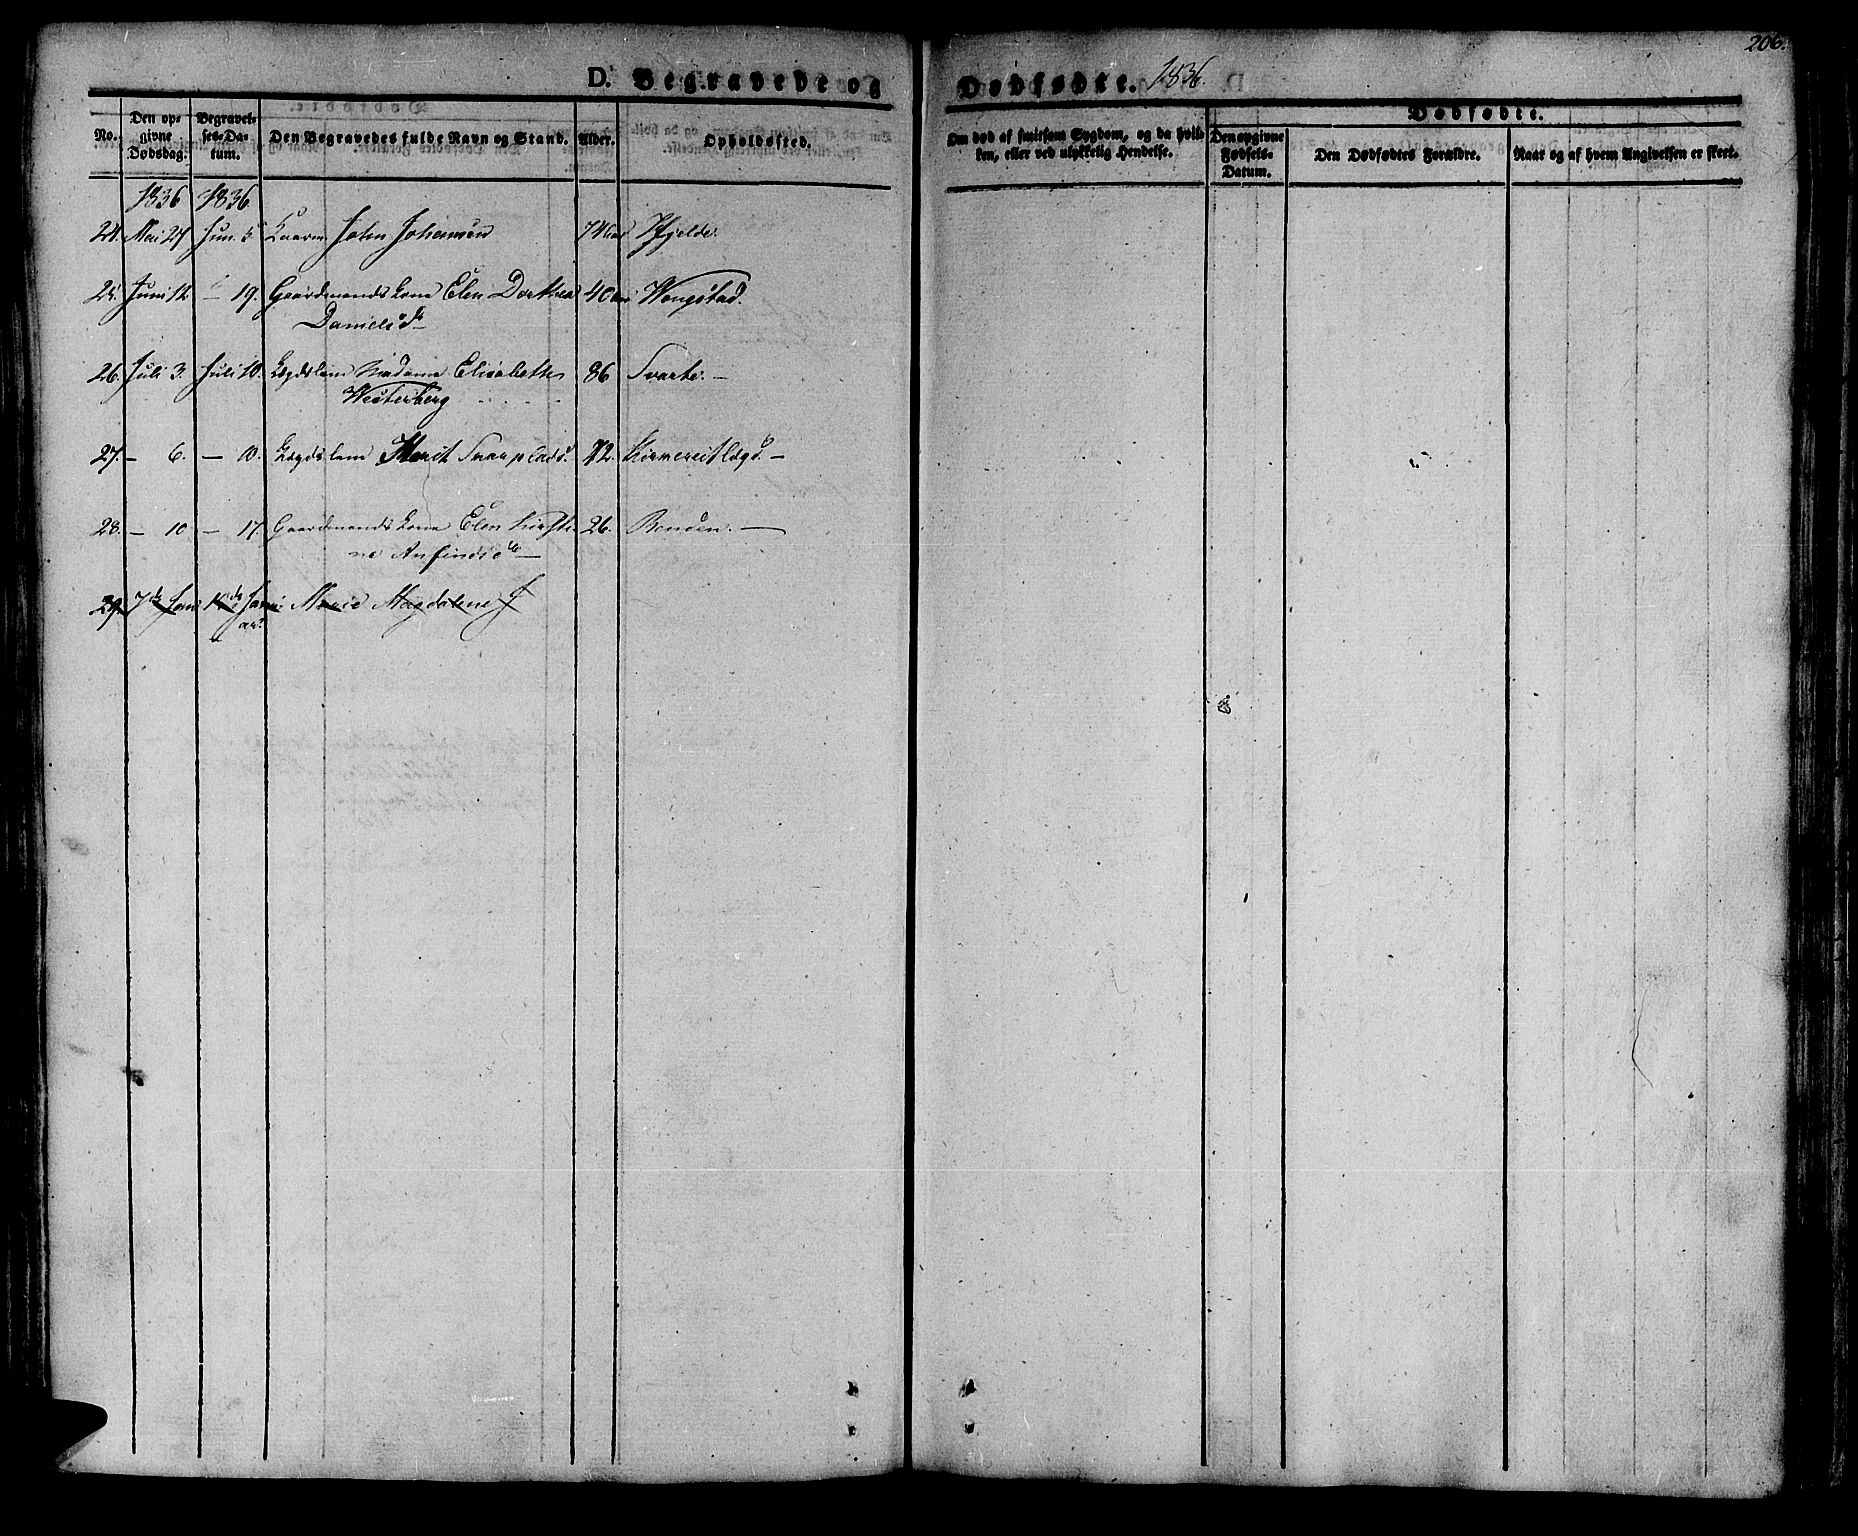 206.
D. Begravede og Dødfødte. 1836.
No. Den opgivne Dødsdag. Begravelses-Datum. Den Begravedes fulde Navn og Stand. Alder. Opholdssted. Om død af smitsom Sygdom, og da hvilken, eller ved ulykkelig Hendelse. Dødfødte. Den opgivne Fødsels-Datum. Den Dødfødtes Forældre. Naar og af hvem Angivelsen er skeet.
1836 1836.
24. Mai 27 Jun. 5 John Johansen 74
25. Juni 12 - 19. Gaardmands Kone Elen Dorthea 40 Wongstad.
Danielsd
26. Juli 3. Juli 10. Lægdslem Madame Elisabeth 86 Svarte. -
Westerberg
27. - 6. - 10. Lægdslem Marit 72. -
28. - 10 - 17. Gaardmands Kone Elen Kirsti- 26. -
ne Anfindsd
29. 7de Jan Marie Magdalene J